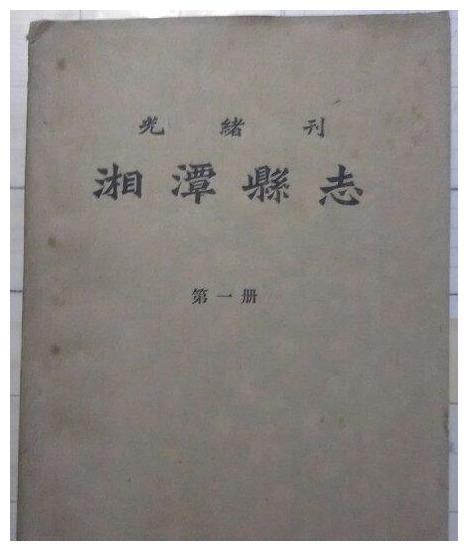 光緒刊
湘潭縣志
第一册